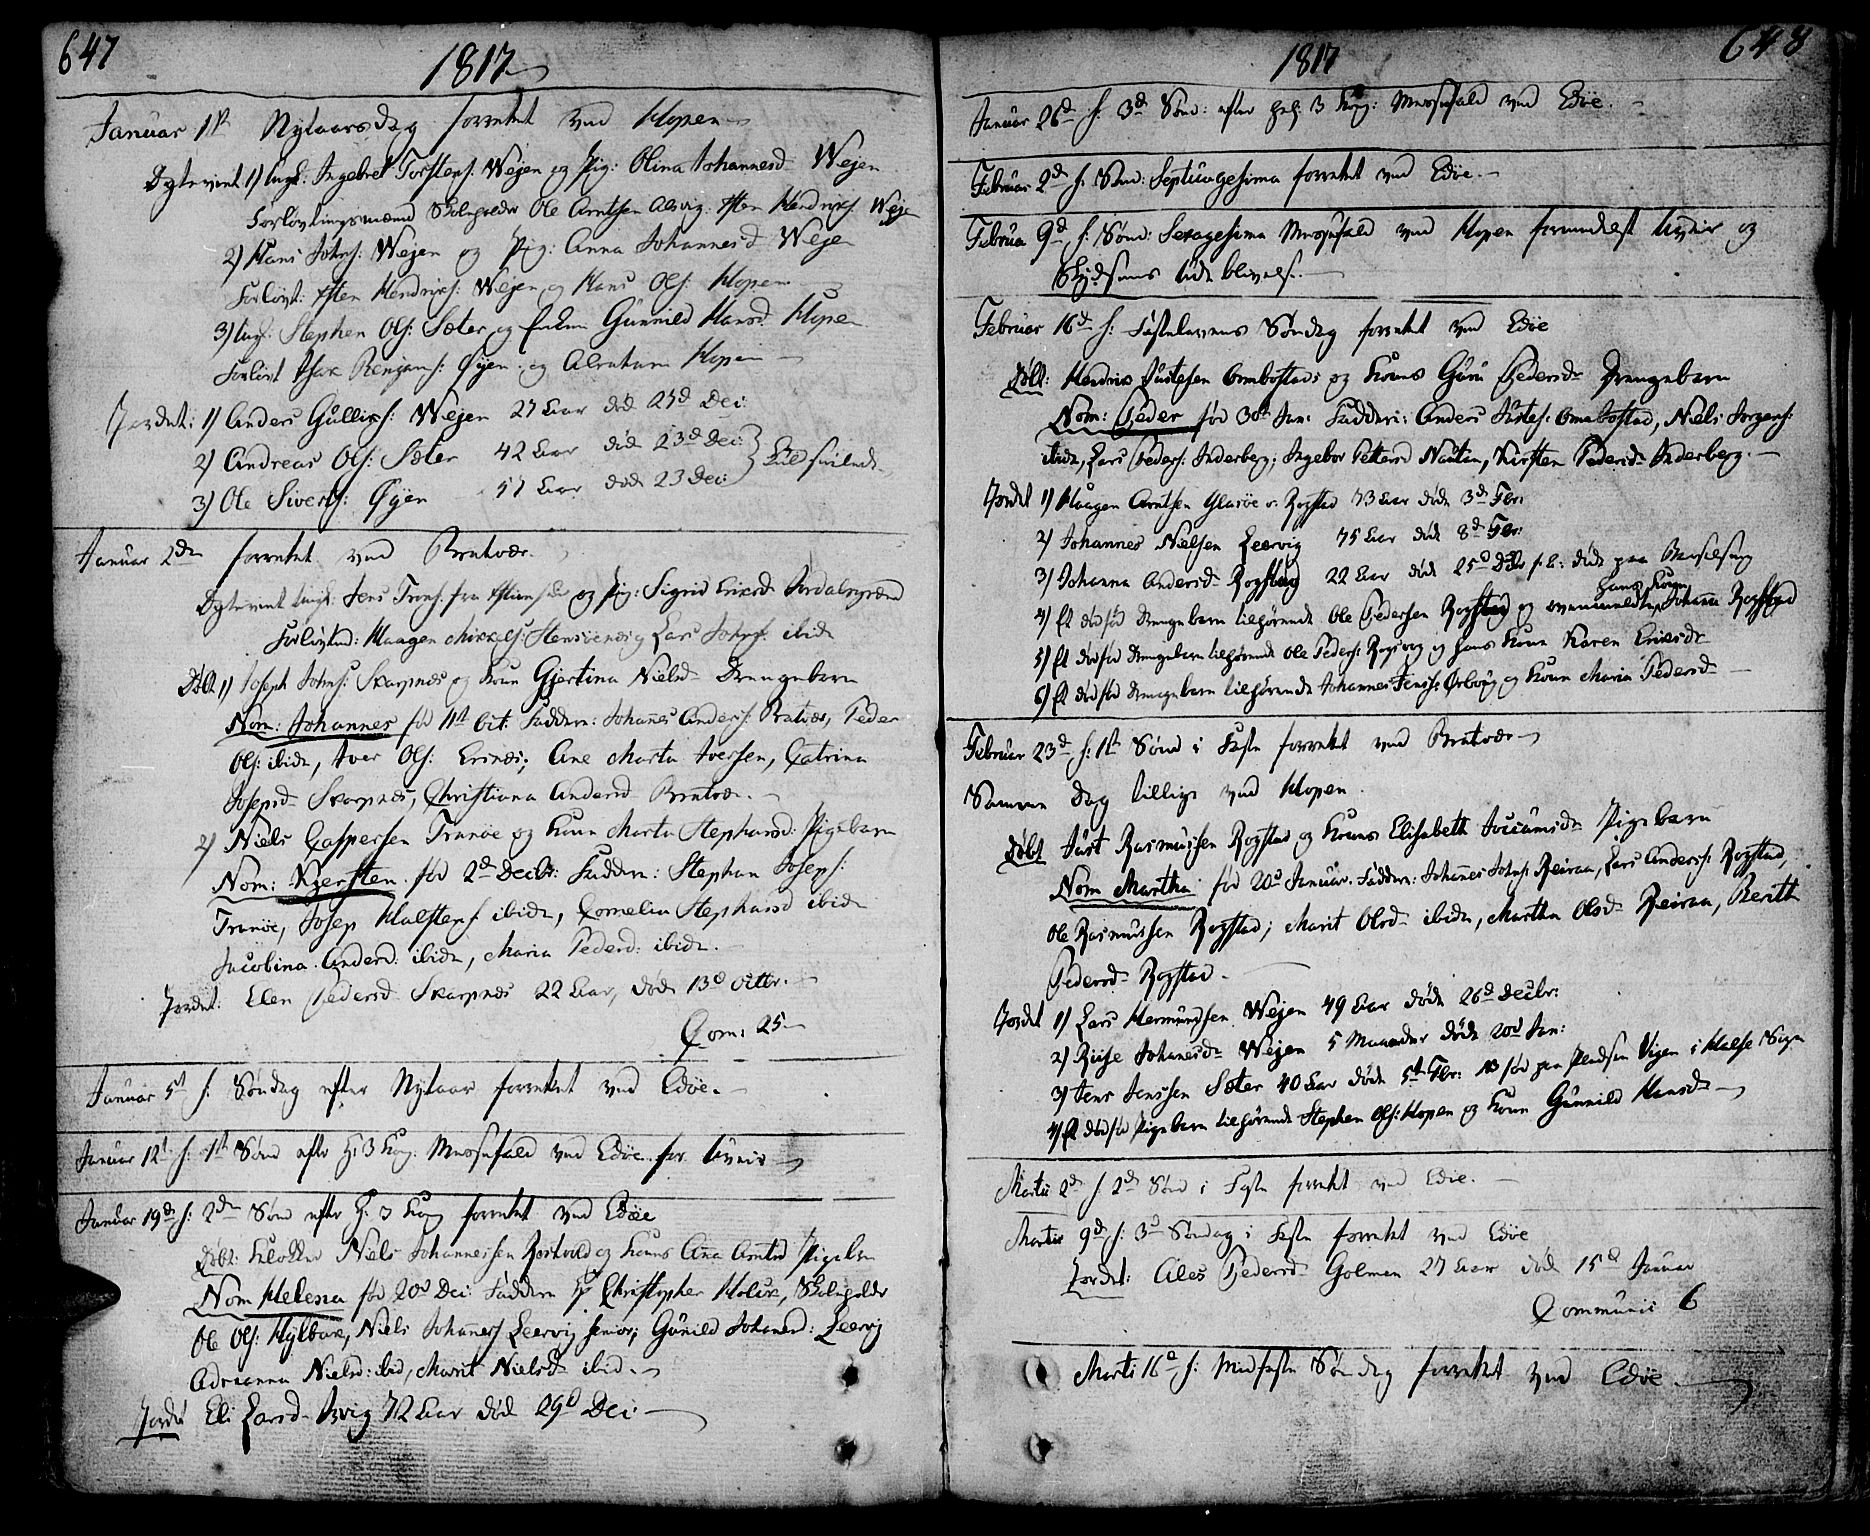 647
1817
Januar 1st Nytaarsdag forrettet ved Hopen
Egtevint 1) Ungk: Ingebret Torstens: Wejen og Pig: Olina Johannesd Wejen
Forlovningsmænd Skoleholder Ole Arntsen Aasvig. Østen Hendriks: Wejen
2) Hans Johns: Wejen og Pig: Anna Johannesd Wejen
Forlovt: Østen Hendriks: Wejen og Hans Ols: Hopen
3) Ungk: Stephen Ols: Sæter og Enken Gunnild Hansd Hopen
Forlovt Isak Benjams: Øyen og Abraham Hopen
Jordet: 1) Anders Gulliks: Wejen 27 Aar død 27d Dec:
2) Andreas Ols: Sæter 42 Aar død 23d Dec:
3) Ole Siverts: Øyen 57 Aar død 23 Dec:
Januar 2den forrettet ved Bratvær
Egtevint Ungk: Jens Trons: fra og Pig: Sigrid Eriksd
Forlovtn: Haagen Mikkels: Stensønes og Lars Johns: ibid
Døbt 1) Joseph Johns: Skarpnæs og Kone Gjertina Nielsd Drengebarn
Nom: Johannes fød 11te Oct: Faddere: Johanes Anders: Bratvær, Peder
Ols: ibidn, Iver Ols: Ersnæs; Ane Marta Iversen, Catrina
Josepsd Skarpnæs, Christiana Andersd Bratvær.
2) Niels Caspersen Tranøe og Kone Marta Stephansd: Pigebarn
Nom: Kjersten fød 2d Decbr: Faddere: Stephan Joseps:
Tranøe, Josep Halstens: ibidn, Cornelia Stephansd ibidn
Jacobina Andersd: ibidn, Maria Pedersd: ibidn.
Jordet: Elen Pedersd Skarpnæs 22 Aar, døde 13d Octbr.
Com: 25
Januar 5t s: Søndag efter Nytaar forrettet ved Edøe.
Januar 12t s: 1st Sønd efter H: 3 Kong: Messefald ved Edøe for Uveir
Januar 19de s: 2den Sønd efter H: 3 Kong forrettet ved Edøe
Døbt: Klokker Niels Johannessen og Kones Ana Arntsd Pigebarn
Nom Helena fød 20d Dec: Faddere Hr Christopher Holck, Skoleholder
Ole Ols: Hylbak, Niels Johanes Leervig senior; Gunild Johanesd: Leervig
Adrianna Nielsd: ibid, Marit Nielsd ibid.
Jordet Eli Larsd 72 Aar død 29d Dec:
648
1817
Januar 26d s: 3d Sønd: efter Hel: 3 Kong: Messefald ved Edøe.
Februar 2d s: Sønd: Septuagesima forrettet ved Edøe.
Februar 9d s: Sønd: Sexagesima Messefald ved Hopen formedelst Uveir og
Skydsens Udeblivelse.
Februar 16d s: Fastelavens Søndag forrettet ved Edøe
Døbt: Hendrik Justesen Ombostad og Kones Guru Pedersd Drengebarn
Nom: Peder fød 30d Jan: Faddere: Anders Justes: Ombostad, Niels Jørgens:
ibidn, Lars Peders: Inderberg; Ingebor Pettersd Nautan, Kirsten Pedersd Inderberg.
Jordet 1) Haagen Arntsen Glasøe v. Rogstad 73 Aar døde 3d Febr:
2) Johannes Nielsen Leervig 75 Aar død 8d Febr:
3) Johanna Andersd Rogstad 22 Aar død 25d f. A: døde paa Barselseng
4) Et dødfød Drengebarn tilhørende Ole Pedersen Rogstad og hans Kone ovenmeldte Johanna Rogstad
5) Et dødfød Drengebarn tilhørende Ole Peders: og hans Kone Karen Eriksd
6) Et dødfød Drengebarn tilhørende Johannes Jens: Ørbog og Kone Maria Pedersd
Februar 23d s: 1st Sønd i Faste forrettet ved Bratvær
Samme Dag tillige ved Hopen.
Døbt Just Rasmussen Rogstad og Kones Elisabeth Joccumsd Pigebarn
Nom Martha fød 20d Januar. Faddere: Johanes Johns: Reiraa, Lars Anders: Rogstad,
Ole Rasmussen Rogstad; Marit Olsd ibidn, Martha Olsd Reiraa, Beritt
Pedersd Rogstad.
Jordet 1) Lars Hermundsen Wejen 49 Aar døde 26d Decbr:
2) Johanesd Wejen 5 Maaneder døde 20d Jan:
3) Jens Jenssen Sæter 40 Aar døde 5t Febr: fød paa Pladsen Vigen i Halse Sogn
4) Et dødfød Pigebarn tilhørende Stephen Ols: Hopen og Kone Gunnild Hansd
Martii 2d s: 2d Sønd i Faste forrettet ved Edøe.
Martii 9d s: 3d Søndag i Faste forrettet ved Edøe
Jordet: Ales Pedersd Golmen 27 Aar død 15d Januar
Communic 6
Marti 16d s: Midfaste Søndag forrettet ved Edøe.